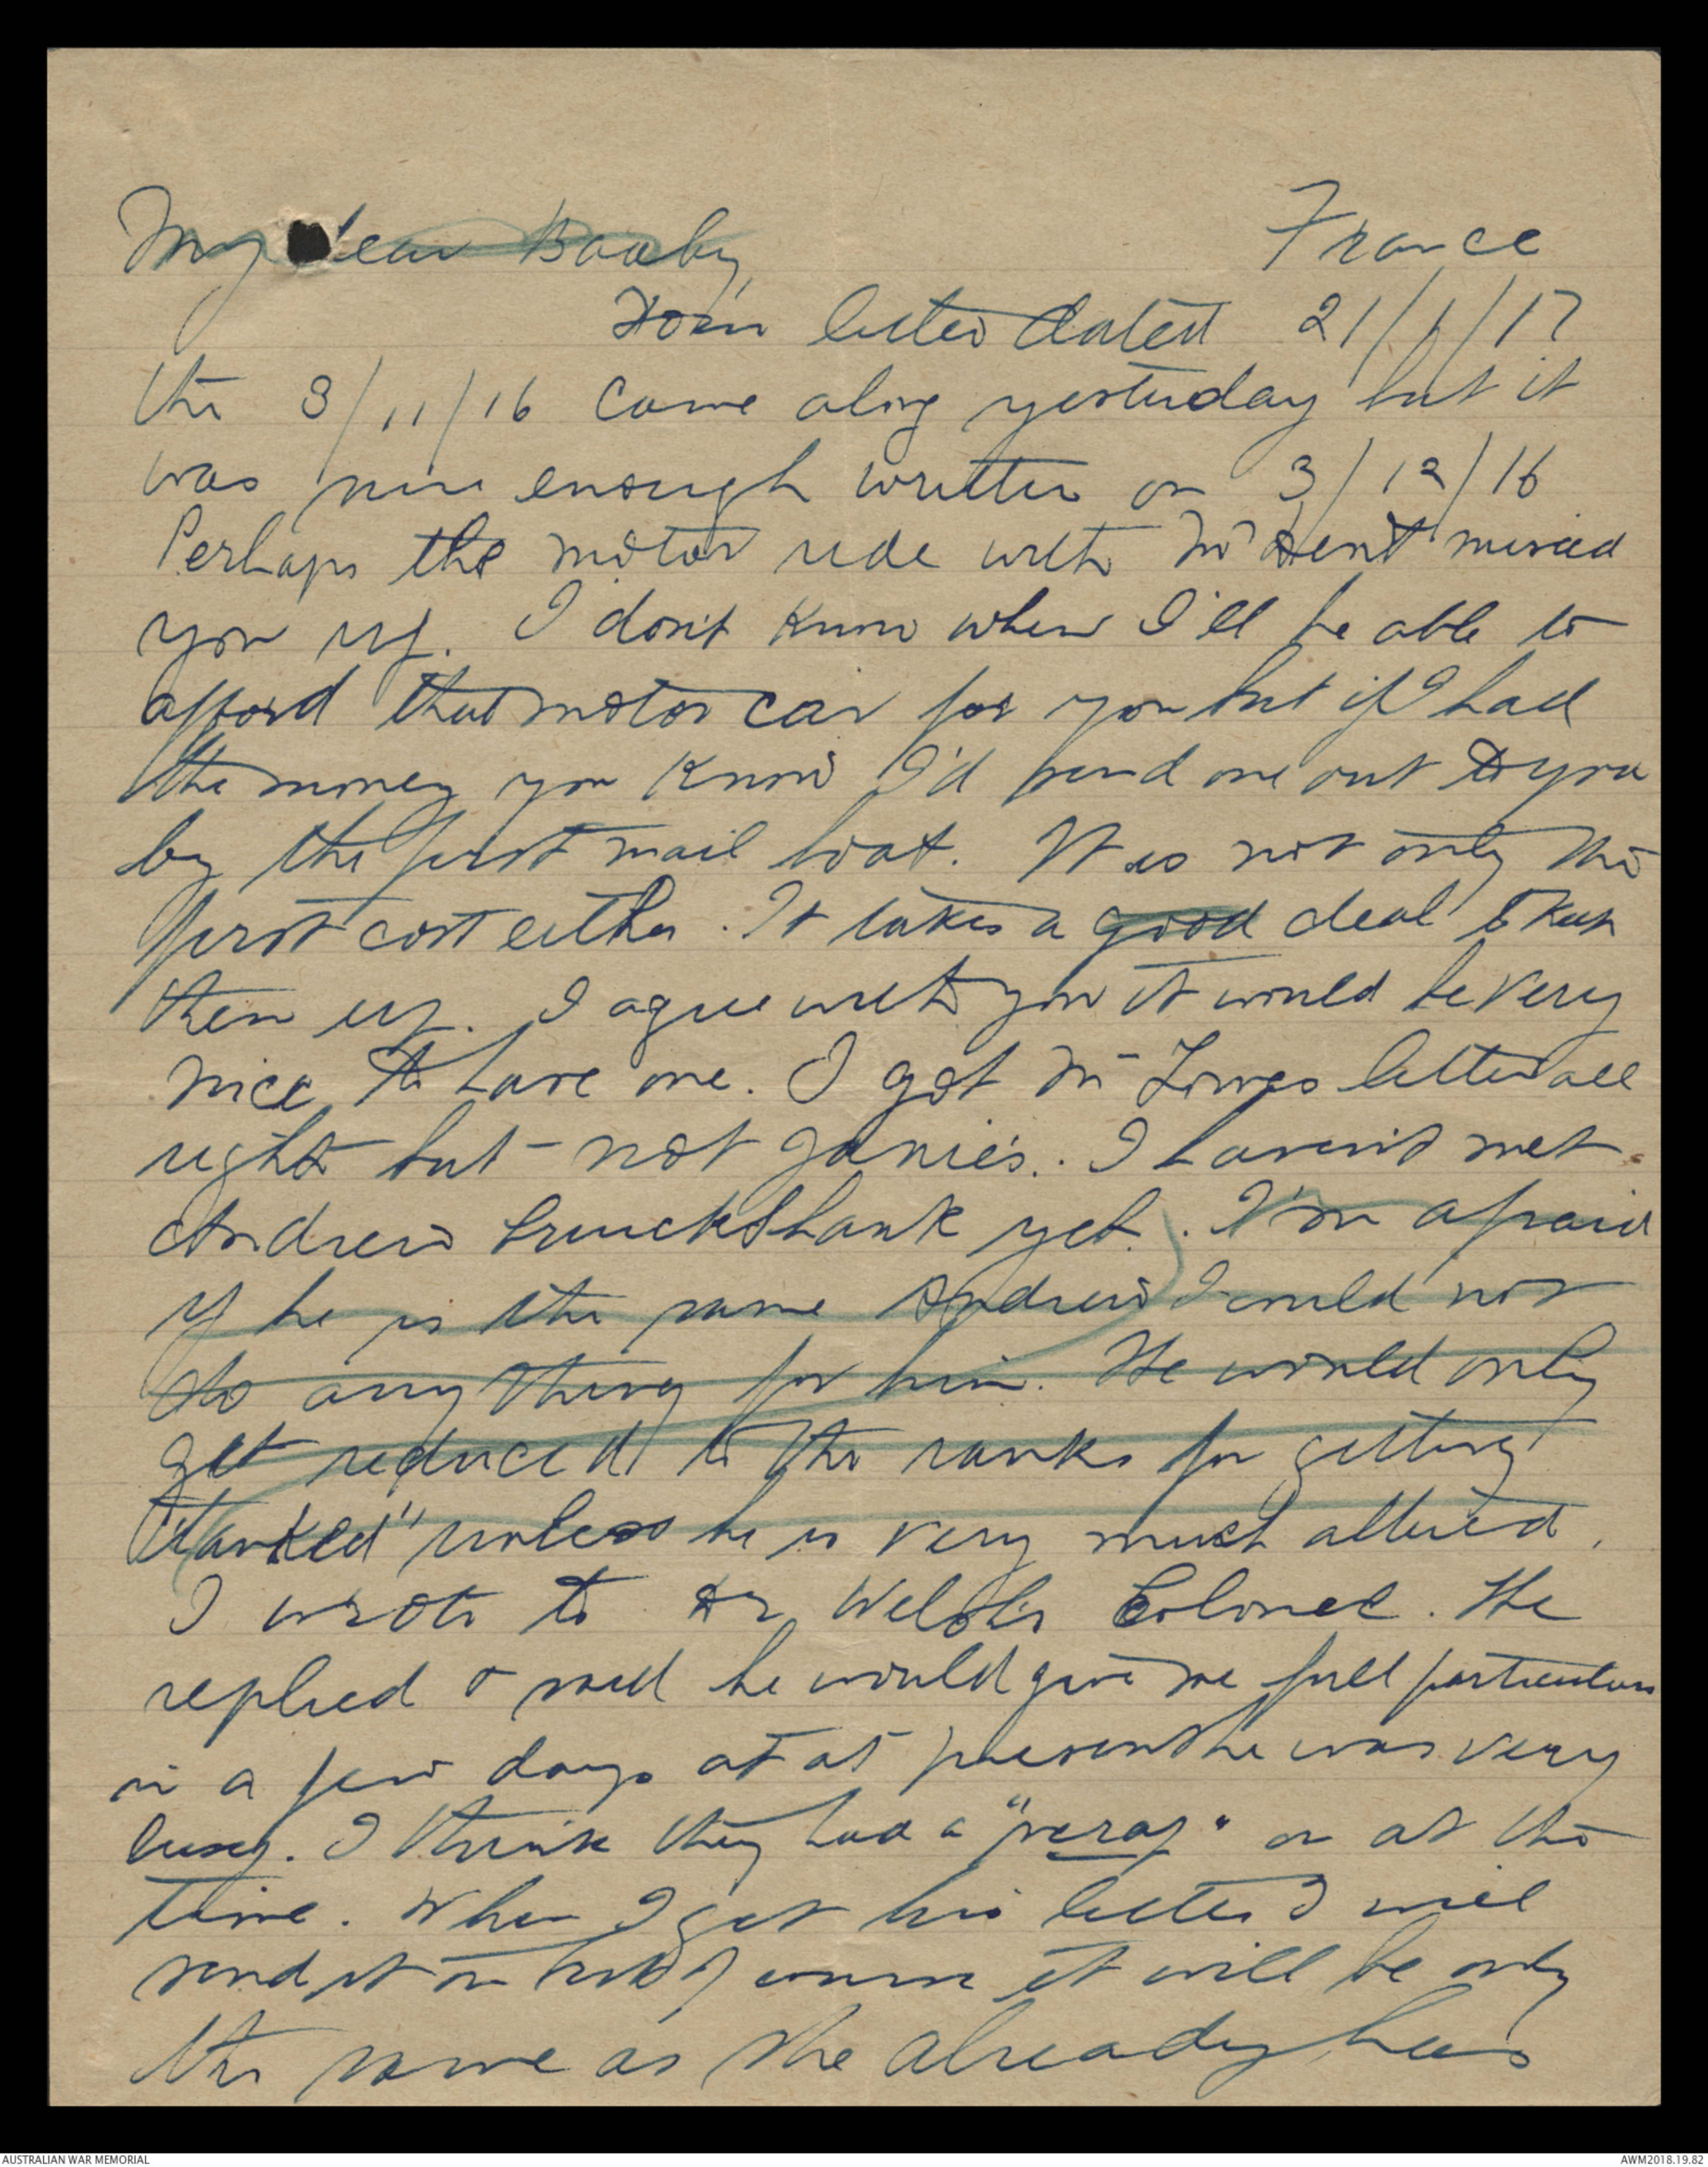 France
My dear Baaby,
Your letter dated 21/1/17
the 3/11/16 came along yesterday but it
was sure enough written on 3/12/16
Perhaps the motor ride with Mr Dent mixed
you up. I don't know when I'll be able to
afford that motor car for you but if I had
the money you know I'd send one out to you
by the first mail boat. It is not only the
first cost either. It takes a good deal to keep
them up. I agree with you it would be very
nice to have one. I got Mr Lowes letter all
right but not Janie's. I haven't met
Andrew Cruickshank yet. I'm afraid
if he is the same Andrew I could not
do anything for him. He would only
get reduced to the ranks for getting
"tanked" unless he is very much altered.
I wrote to Dr Welch's Colonel. He
replied & said he would give me full particulars
in a few days at at present he was very
busy. I think they had a "scrap" on at the
time. When I get his letter I will
send it on but of course it will be only
the same as she already has
AUSTRALIAN WAR MEMORIAL
AWM2018.19.82